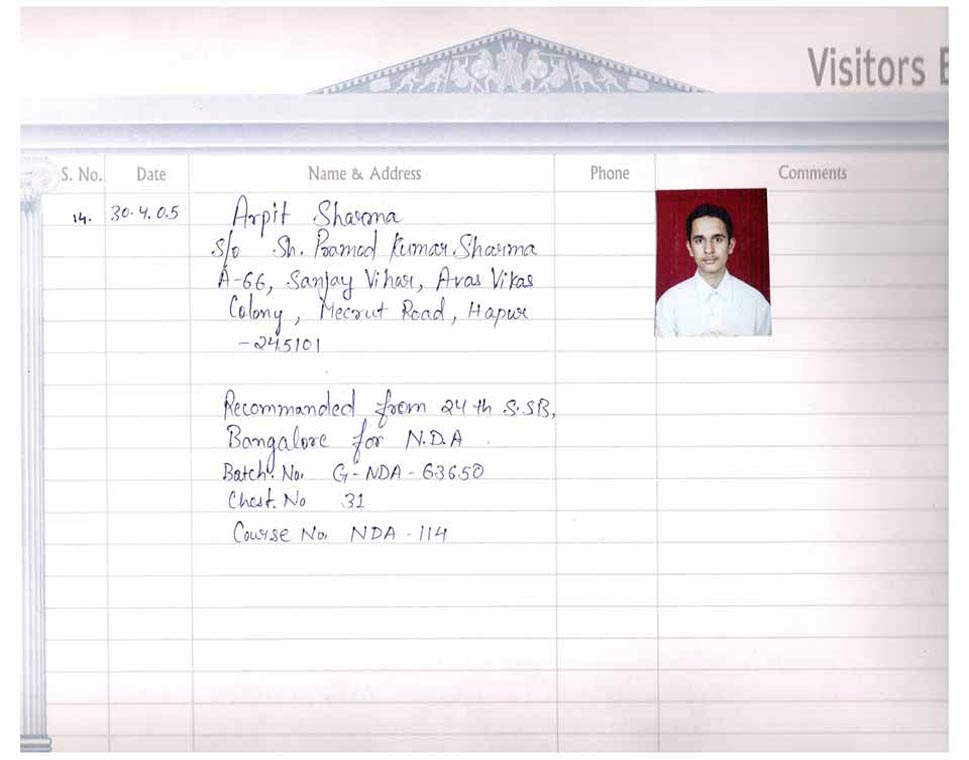 Visitors B
S. No. Date Name & Address Phone Comments
14. 30.4.05 Arpit Sharma
S/o Sh. Pramod Kumar Sharma
A-66, Sanjay Vihar, Avas Vikas
Colony, Meerut Road, Hapur
-245101
Recommanded from 24th S.SB,
Bangalore for N.D.A
Batch. No. G-NDA-63650
Chest. No 31
Course No. NDA-114